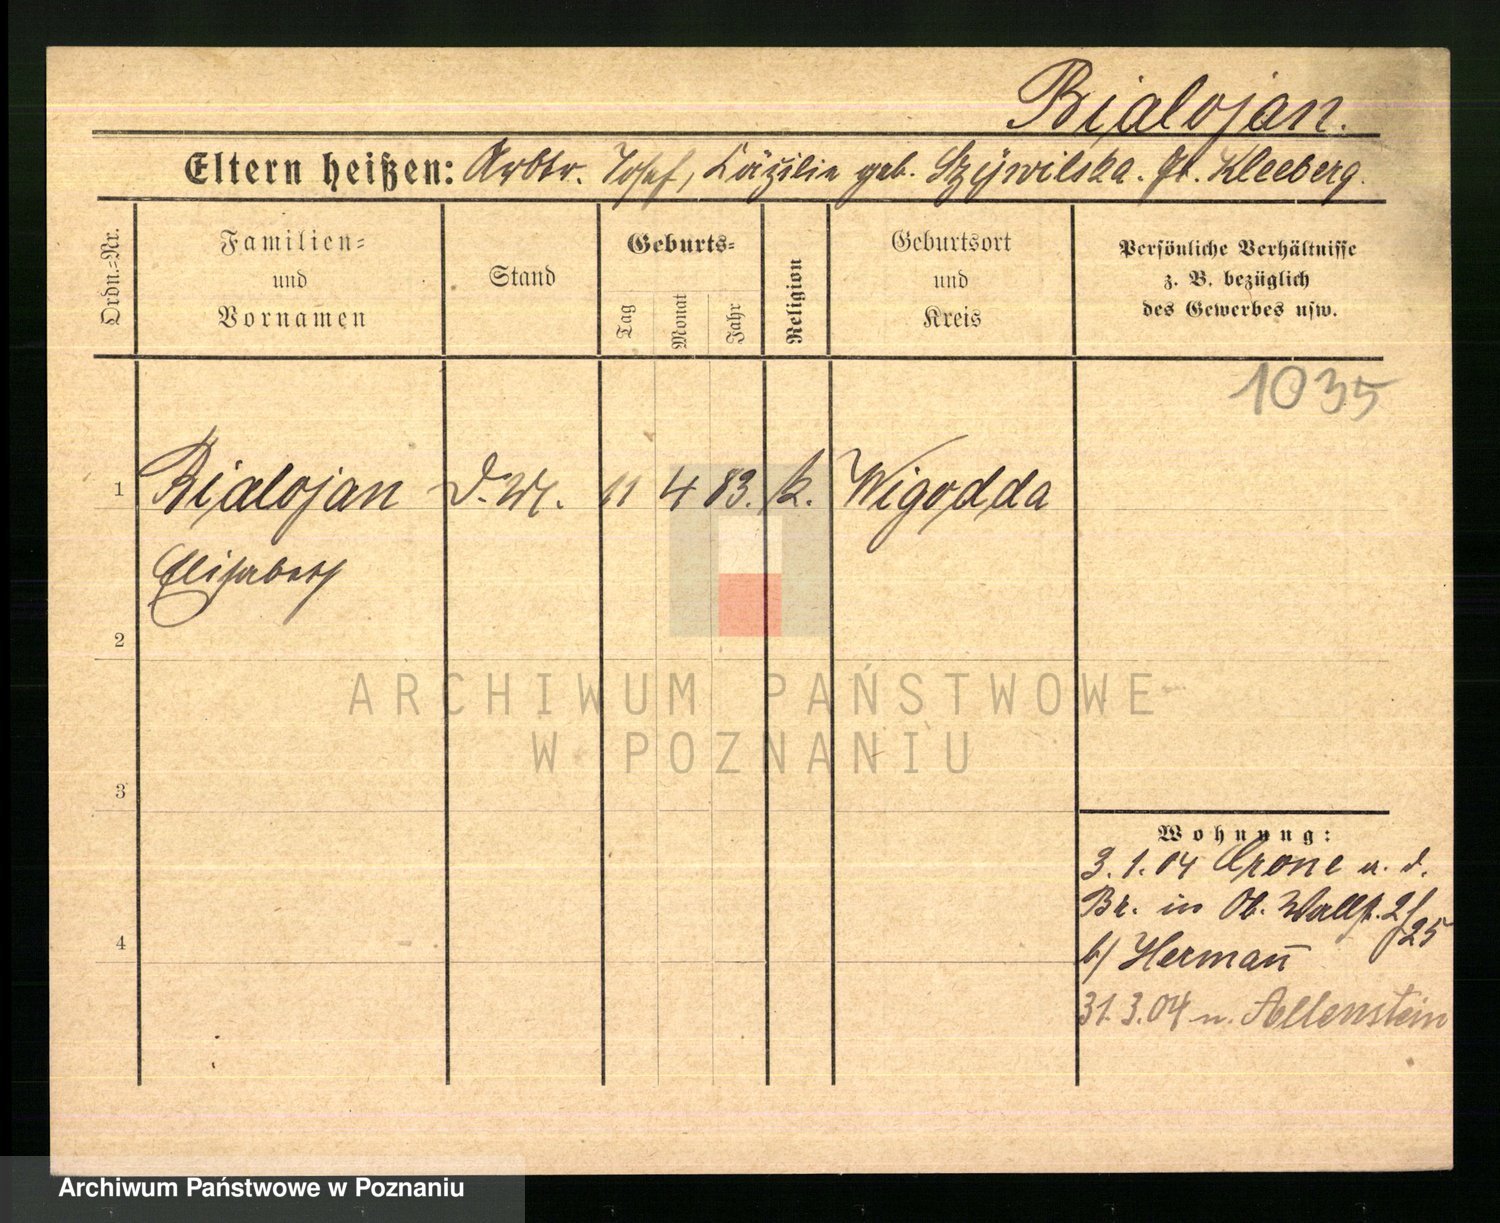 Bialojan.
Eltern heißen: Arbtr. Josef, Cäzilie geb. Szywilska. Gr. Kleeberg.
Ordn.=Nr.
Familien=
und
Vornamen
Stand
Geburts=
Tag
Monat
Jahr
Religion
Geburtsort
und
Kreis
Persönliche Verhältnisse
z. B. bezüglich
des Gewerbes usw.
1035
1 Bialojan D. M. 11 4 83. k. Wigodda
Elisabeth
2
ARCHIWUM PAŃSTWOWE
W POZNANIU
3
Wohnung:
3.1.04 Crone a. d.
Br. in Ob. Wallstr.
25
4
b/ Hermann
31.3.04 n. Allenstein
Archiwum Państwowe w Poznaniu